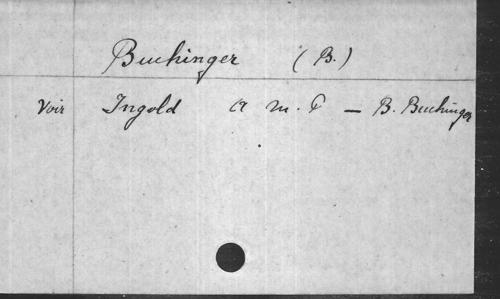 Buchinger (B.)
Voir Ingold A M. P — B. Buchinger